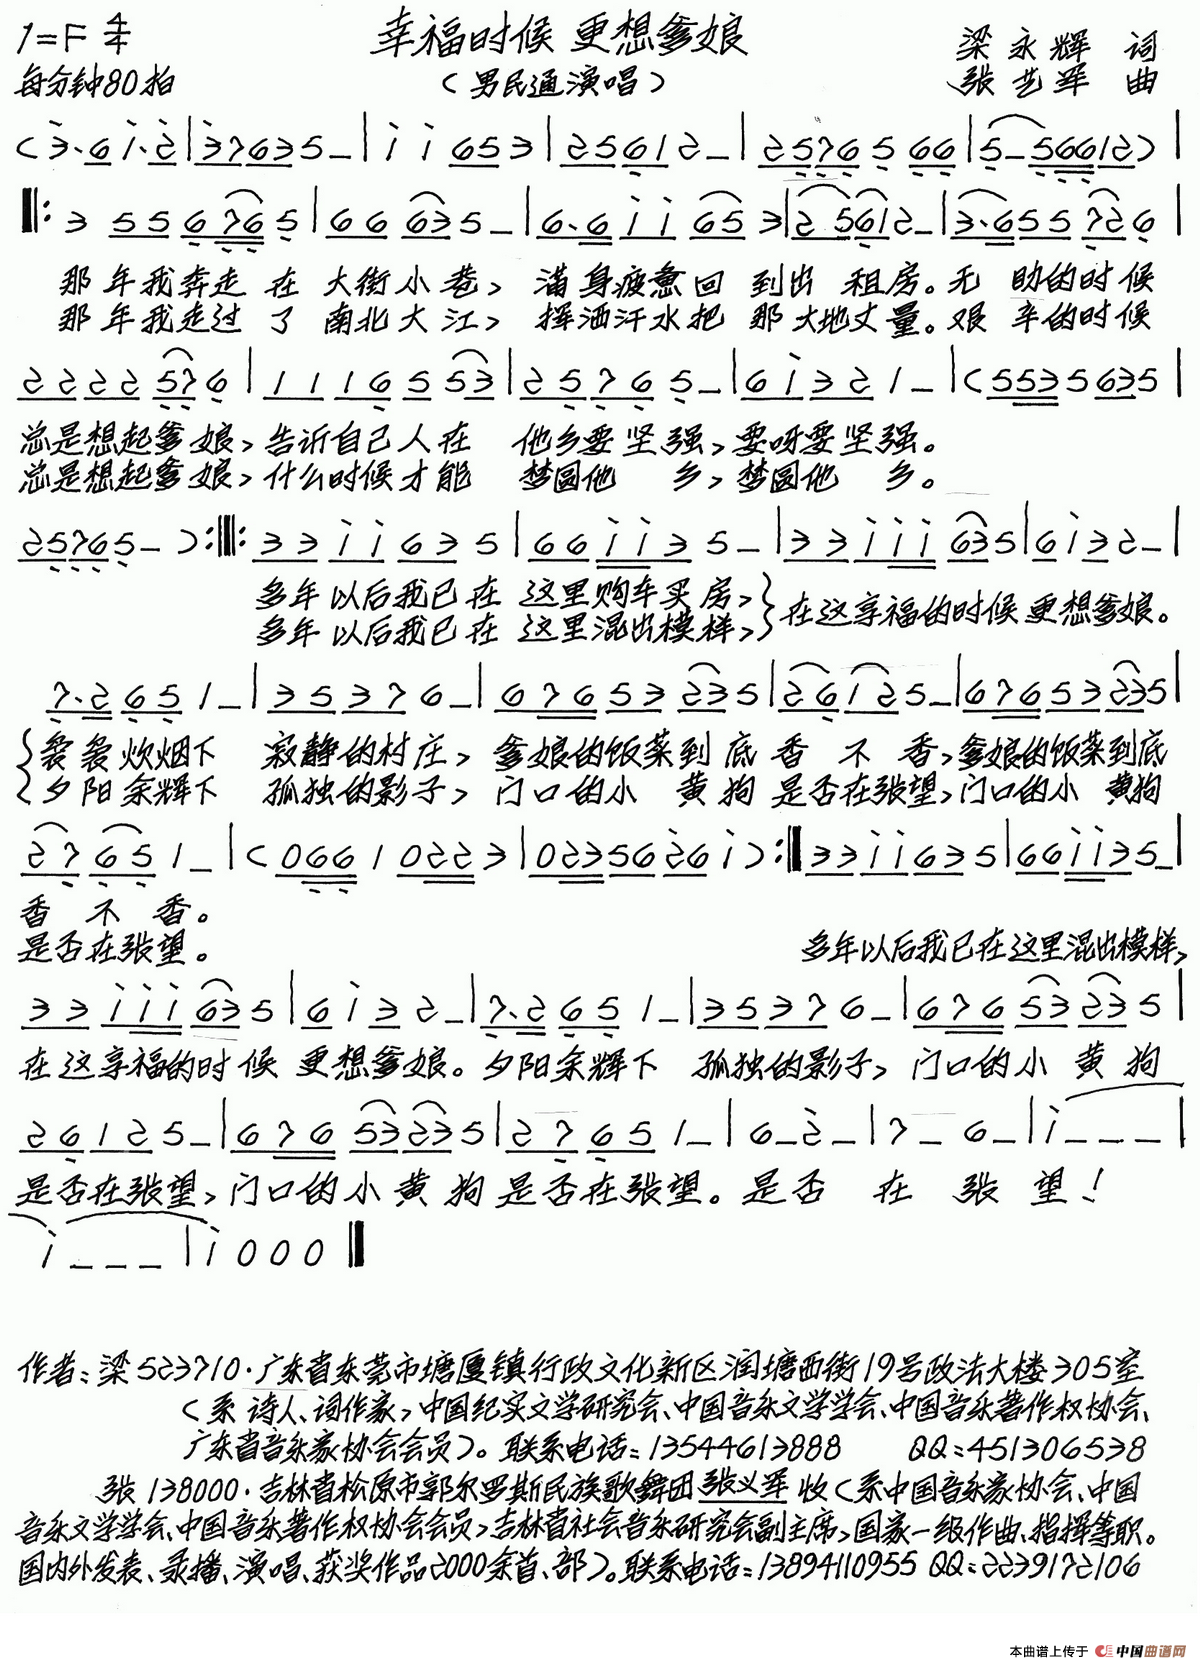 1=F 4/4 幸福时候 更想爹娘 梁永辉 词
每分钟80拍 （男民通演唱） 张艺军 曲
(3·6 1·2|3763 5–|1 1 653|2561 2–|2576 5 66|5–56612)|
‖:3 55 676 5|66 635–|6·6 11 65 3|2 5612–|3·655 726|
那年我奔走 在 大街小巷，满身疲惫回 到出 租房。无 助的时候
那年我走过 了 南北大江，挥洒汗水把 那大地丈量。艰 辛的时候
22 22 57 6|11 16 5 53|25 76 5–|61 32 1–|(553 5 635|
总是想起爹 娘，告诉自己人在 他乡要坚强，要呀要坚强。
总是想起爹 娘，什么时候才能 梦圆他 乡，梦圆他 乡。
25765–):‖:33 11 63 5|66 113 5–|33 111 635|61 32–|
多年以后我已在 这里购车买房， 在这享福的时候更想爹娘。
多年以后我已在 这里混出模样，
7·2 65 1–|35 37 6–|676 53 235|26 125–|67653235|
袅袅炊烟下 寂静的村庄，爹娘的饭菜到 底香 不 香，爹娘的饭菜到底
夕阳余辉下 孤独的影子，门口的小 黄狗 是否在张望，门口的小 黄狗
27 65 1–|(0661 0223|02356261):‖33 11 63 5|66 1135–|
香 不 香。
是否在张望。 多年以后我已在这里混出模样，
33 111 635|61 32–|7·2 65 1–|35 37 6–|676 53 235|
在这享福的时候 更想爹娘。夕阳余辉下 孤独的影子，门口的小 黄狗
26 12 5–|676 53 235|27 65 1–|6–2–|7–6–|1–––|
是否在张望，门口的小黄狗是否在张望。是否 在 张 望！
1–––|1000‖
作者：梁 523710·广东省东莞市塘厦镇行政文化新区润塘西街19号政法大楼305室
（系 诗人、词作家，中国纪实文学研究会、中国音乐文学学会、中国音乐著作权协会、
广东省音乐家协会会员）。联系电话：13544613888 QQ：451306538
张 138000·吉林省松原市郭尔罗斯民族歌舞团 张义军 收（系中国音乐家协会、中国
音乐文学学会、中国音乐著作权协会会员，吉林省社会音乐研究会副主席，国家一级作曲、指挥等职。
国内外发表、录播、演唱、获奖作品2000余首、部）。联系电话：13894110955 QQ：2239172106
本曲谱上传于 中国曲谱网